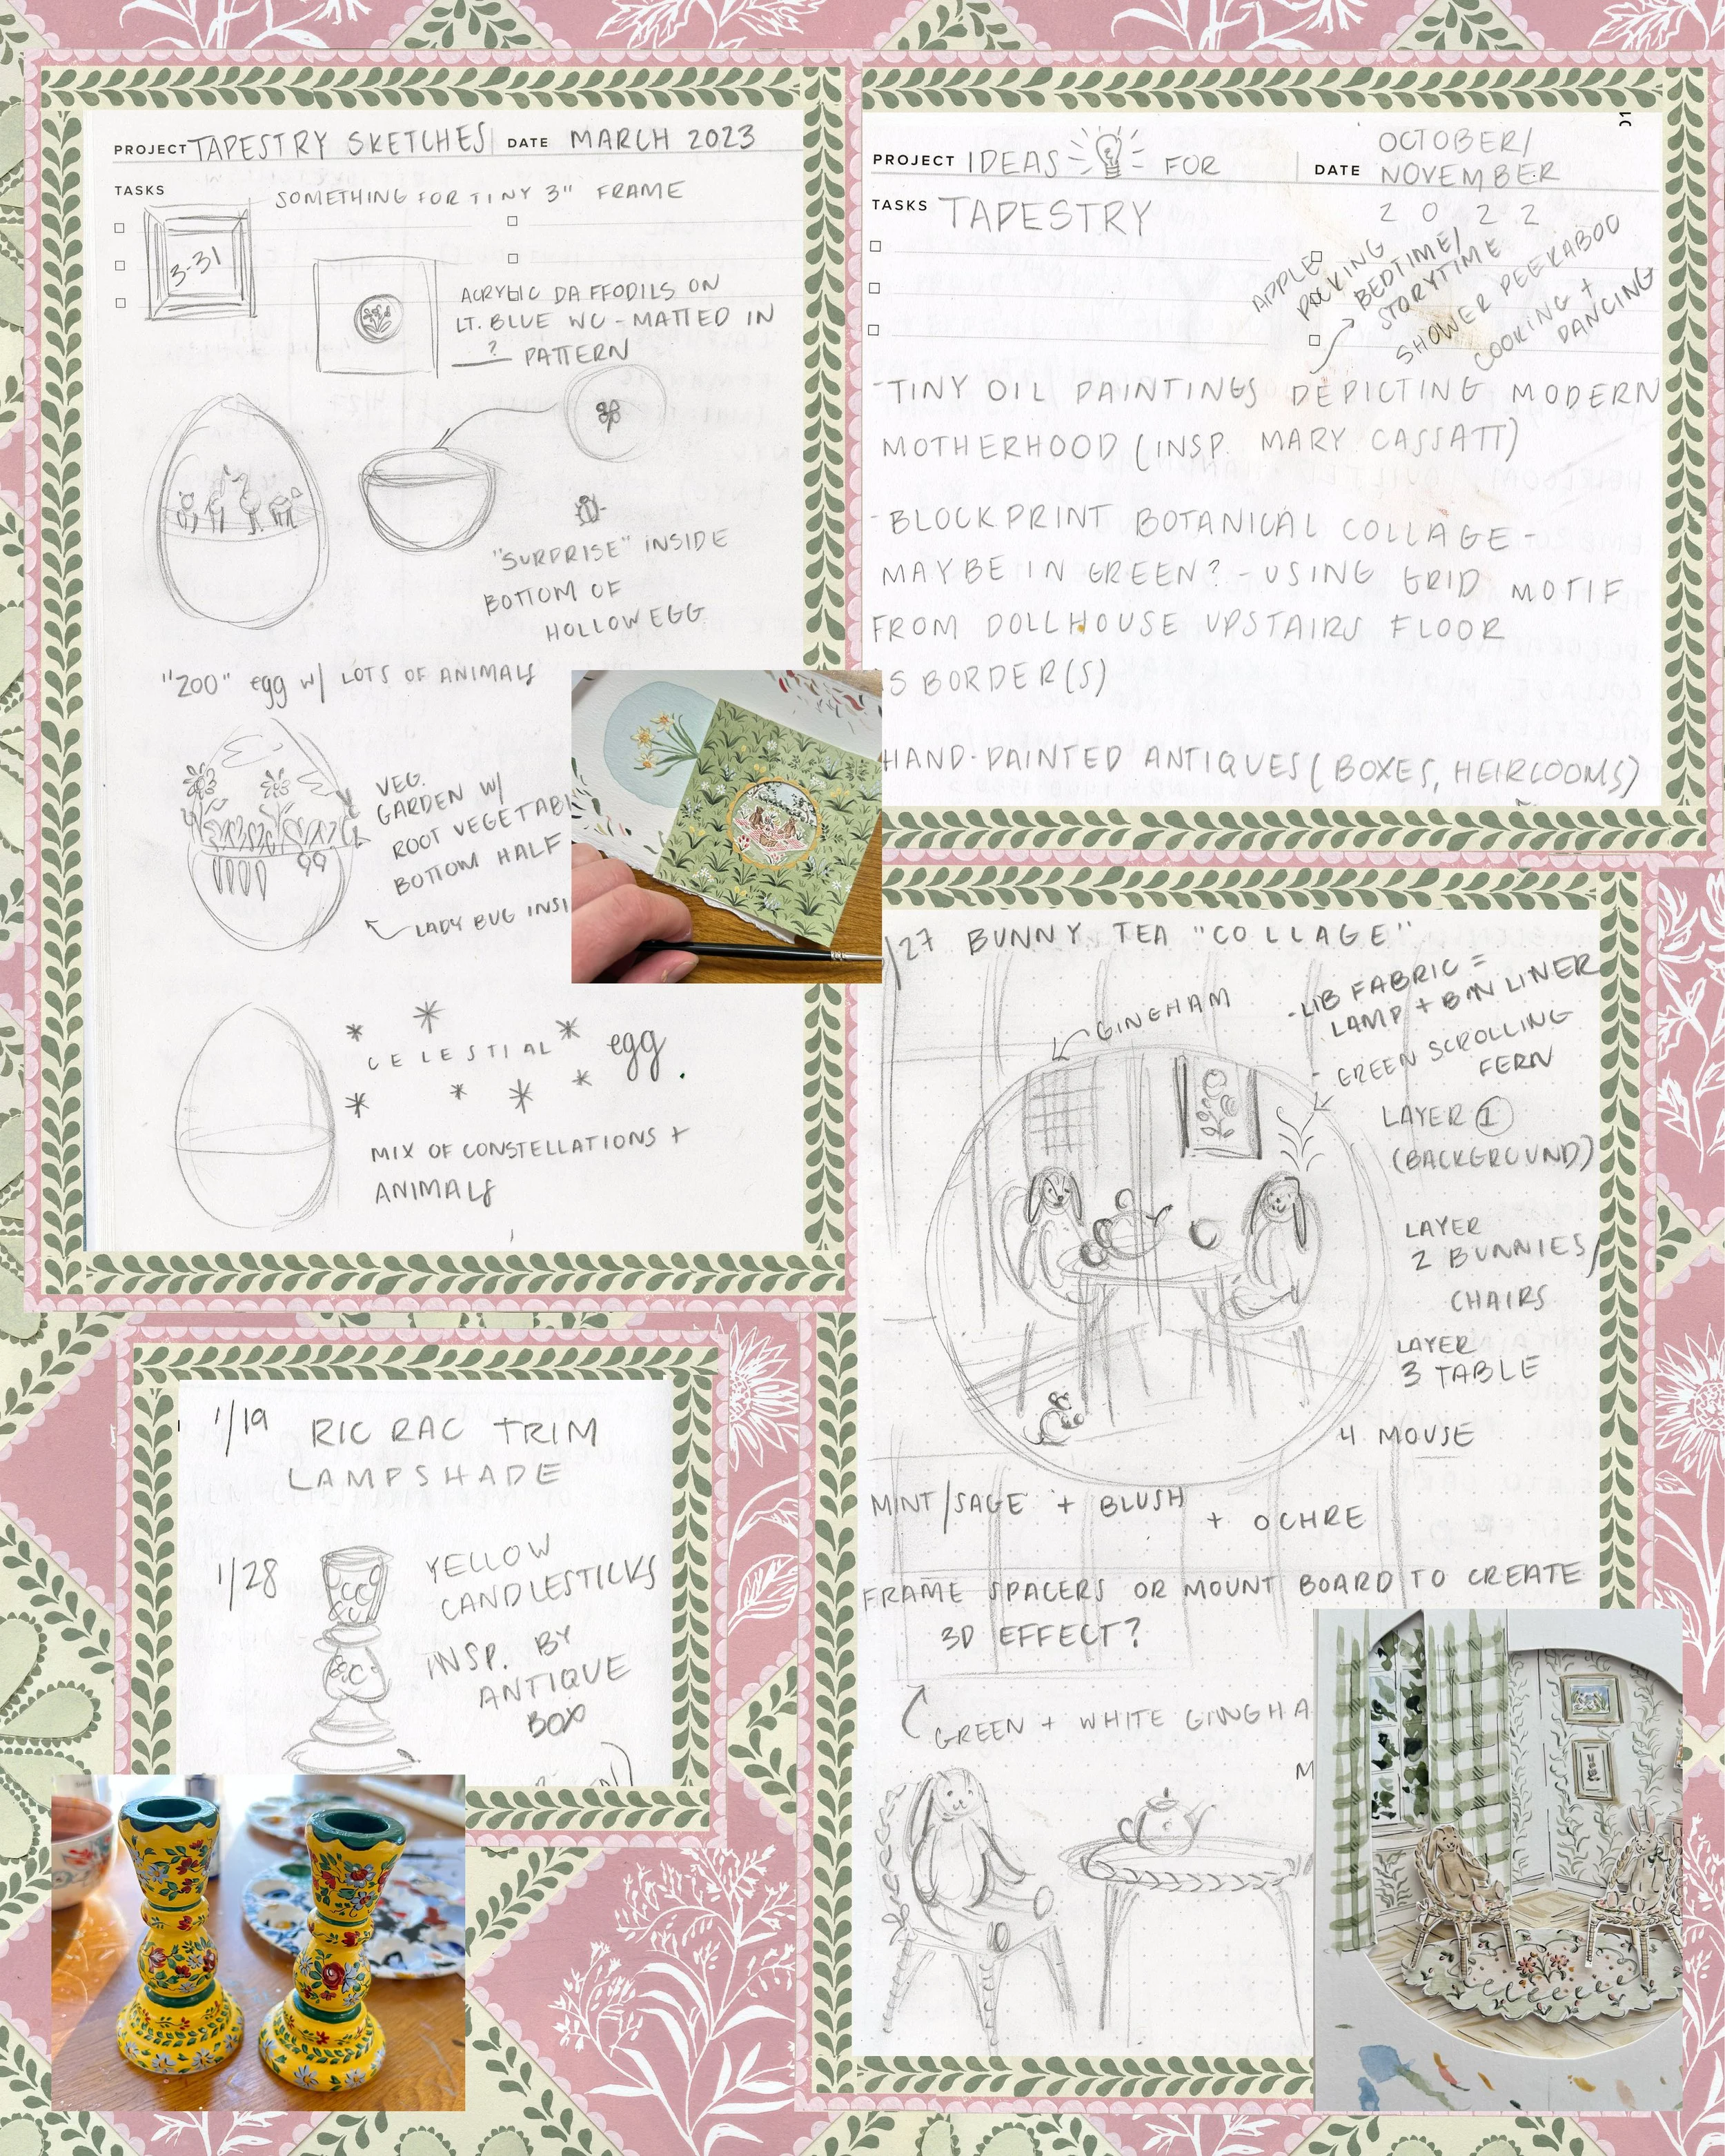 PROJECT TAPESTRY SKETCHES DATE MARCH 2023
TASKS
SOMETHING FOR TINY 3" FRAME
3-31
ACRYLIC DAFFODILS ON
LT. BLUE WC - MATTED IN
? PATTERN
"SURPRISE" INSIDE
BOTTOM OF
HOLLOW EGG
"ZOO" egg w/ LOTS OF ANIMALS
VEG.
GARDEN W/
ROOT VEGETABL
BOTTOM HALF
LADY BUG INSI
CELESTIAL egg
MIX OF CONSTELLATIONS +
ANIMALS
PROJECT IDEAS FOR
DATE OCTOBER/
NOVEMBER
2022
TASKS TAPESTRY
APPLE
PICKING
BEDTIME/
STORYTIME
SHOWER PEEKABOO
COOKING +
DANCING
-TINY OIL PAINTINGS DEPICTING MODERN
MOTHERHOOD (INSP. MARY CASSATT)
-BLOCKPRINT BOTANICAL COLLAGE -
MAYBE IN GREEN? - USING GRID MOTIF
FROM DOLLHOUSE UPSTAIRS FLOOR
S BORDER(S)
HAND-PAINTED ANTIQUES (BOXES, HEIRLOOMS)
/27 BUNNY TEA "COLLAGE"
GINGHAM
-LIB FABRIC =
LAMP + BIN LINER
- GREEN SCROLLING
FERN
LAYER 1
(BACKGROUND)
LAYER
2 BUNNIES/
CHAIRS
LAYER
3 TABLE
4 MOUSE
MINT/SAGE + BLUSH + OCHRE
FRAME SPACERS OR MOUNT BOARD TO CREATE
3D EFFECT?
GREEN + WHITE GINGHA
M
1/19 RIC RAC TRIM
LAMPSHADE
1/28 YELLOW
CANDLESTICKS
INSP. BY
ANTIQUE
BOX